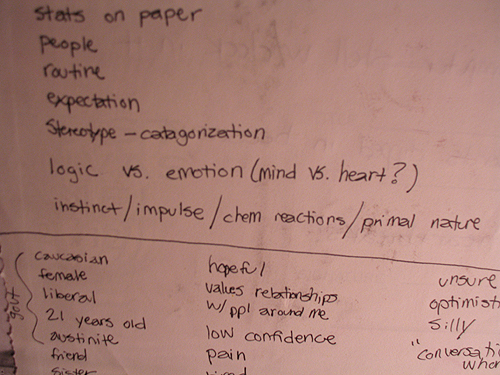 stats on paper
people
routine
expectation
Stereotype - catagorization
logic vs. emotion (mind vs. heart?)
instinct / impulse / chem reactions / primal nature
caucasian
female
liberal
21 years old
austinite
friend
sister
hopeful
values relationships
w/ ppl around me
low confidence
pain
unsure
optimist
silly
"conversati